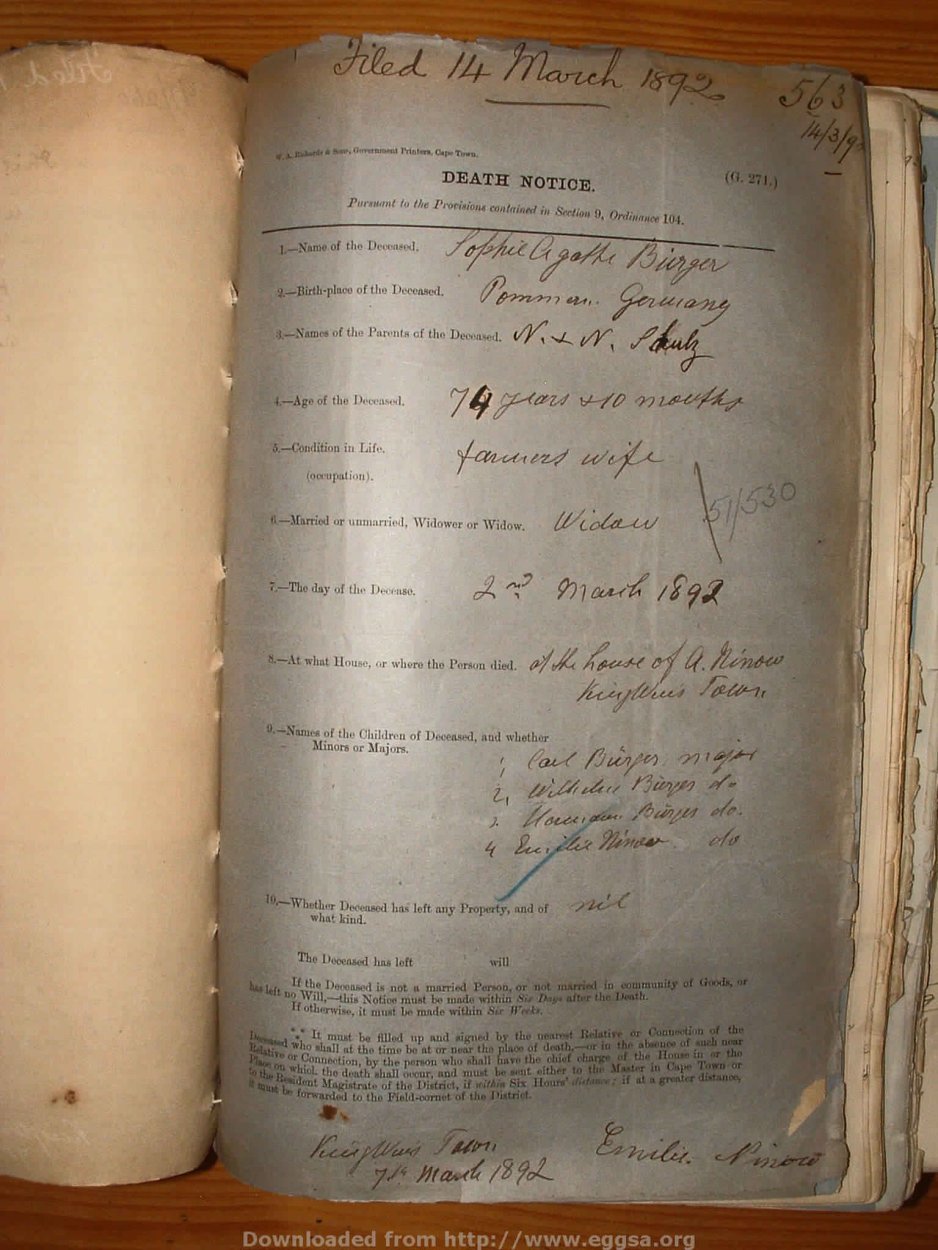 Filed 14 March 1892
563
14/3/92
W. A. Richards & Sons, Government Printers, Cape Town.
DEATH NOTICE.
(G. 271.)
Pursuant to the Provisions contained in Section 9, Ordinance 104.
1.—Name of the Deceased. Sophie Agathe Bürger
2.—Birth-place of the Deceased. Pommern. Germany
3.—Names of the Parents of the Deceased. N. & N.
4.—Age of the Deceased. 74 years & 10 months
5.—Condition in Life. farmers wife
(occupation).
51/530
6.—Married or unmarried, Widower or Widow. Widow
7.—The day of the Decease. 2nd March 1892
8.—At what House, or where the Person died. at the house of A. Ninow
KingWms Town
9.—Names of the Children of Deceased, and whether
Minors or Majors.
1, Carl Bürger major
2, Wilhelm Bürger do
3. Hermann Bürger do.
4 Emilie Ninow do
10,—Whether Deceased has left any Property, and of nil
what kind.
The Deceased has left will
If the Deceased is not a married Person, or not married in community of Goods, or
has left no Will,—this Notice must be made within Six Days after the Death.
If otherwise, it must be made within Six Weeks.
*** It must be filled up and signed by the nearest Relative or Connection of the
Deceased who shall at the time be at or near the place of death,—or in the absence of such near
Relative or Connection, by the person who shall have the chief charge of the House in or the
Place on which the death shall occur, and must be sent either to the Master in Cape Town or
to the Resident Magistrate of the District, if within Six Hours' distance; if at a greater distance,
it must be forwarded to the Field-cornet of the District.
KingWms Town
7th March 1892
Emilie. Ninow
Downloaded from http://www.eggsa.org